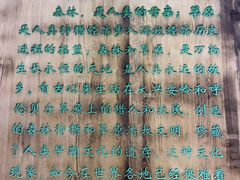 森林,是人类的母亲;草原,
是人类狩猎经济步入游牧经济历史
进程的摇篮;森林和草原,是万物
生长永恒的土地,是人类永远的故
乡,自古以来生活在大兴安岭和呼
伦贝尔草原上的猎人和牧民,创造
的森林狩猎和草原游牧文明,珍藏
了人类早期文化的遗存,这种文化
现象,如今在世界各地已经很难看